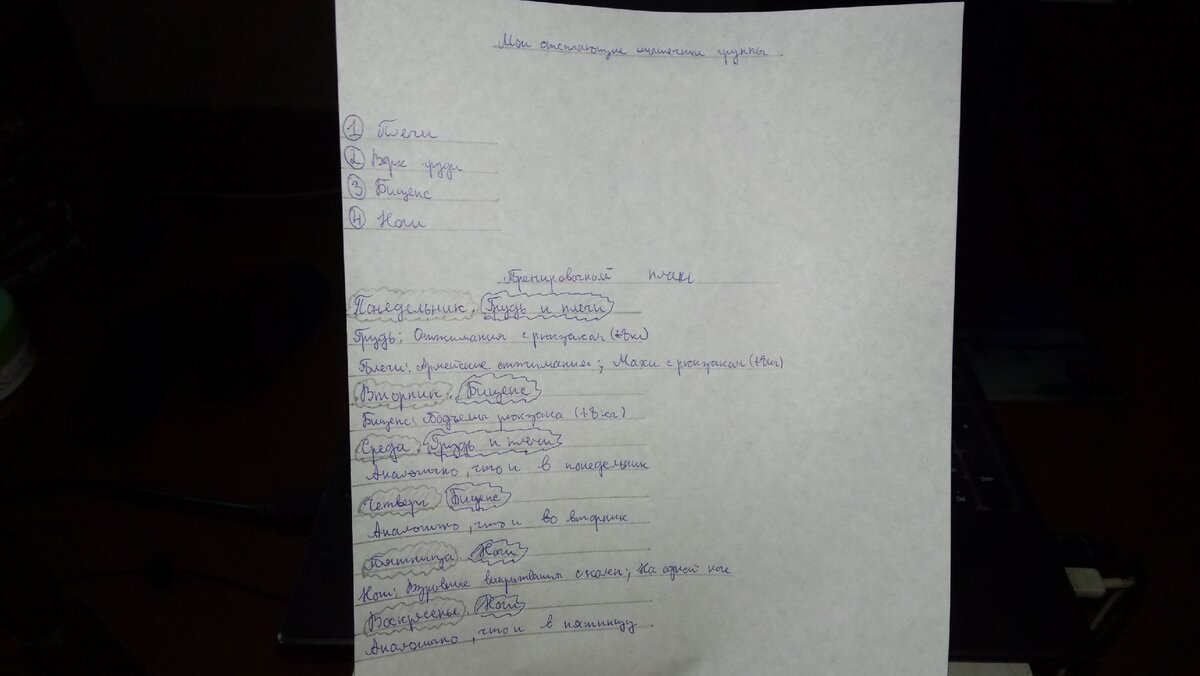 Мои отстающие мышечные группы
1 Плечи
2 Верх груди
3 Бицепс
4 Ноги
Тренировочный план
Понедельник. Грудь и плечи
Грудь: Отжимания с рюкзаком (+8кг)
Плечи: Армейские отжимания; Махи с рюкзаком (+8кг)
Вторник. Бицепс
Бицепс: Подъемы рюкзака (+8кг)
Среда. Грудь и плечи
Аналогично, что и в понедельник
Четверг Бицепс
Аналогично, что и во вторник
Пятница. Ноги
Ноги: Взрывные выпрыгивания с колен; На одной ноге
Воскресенье. Ноги
Аналогично, что и в пятницу.